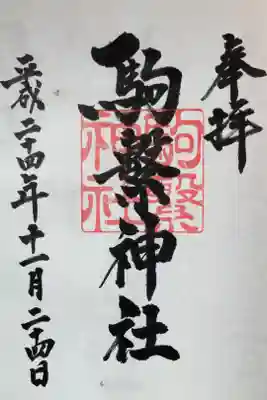 奉拝
駒繋神社
平成二十四年十一月二十四日
駒繋
神社